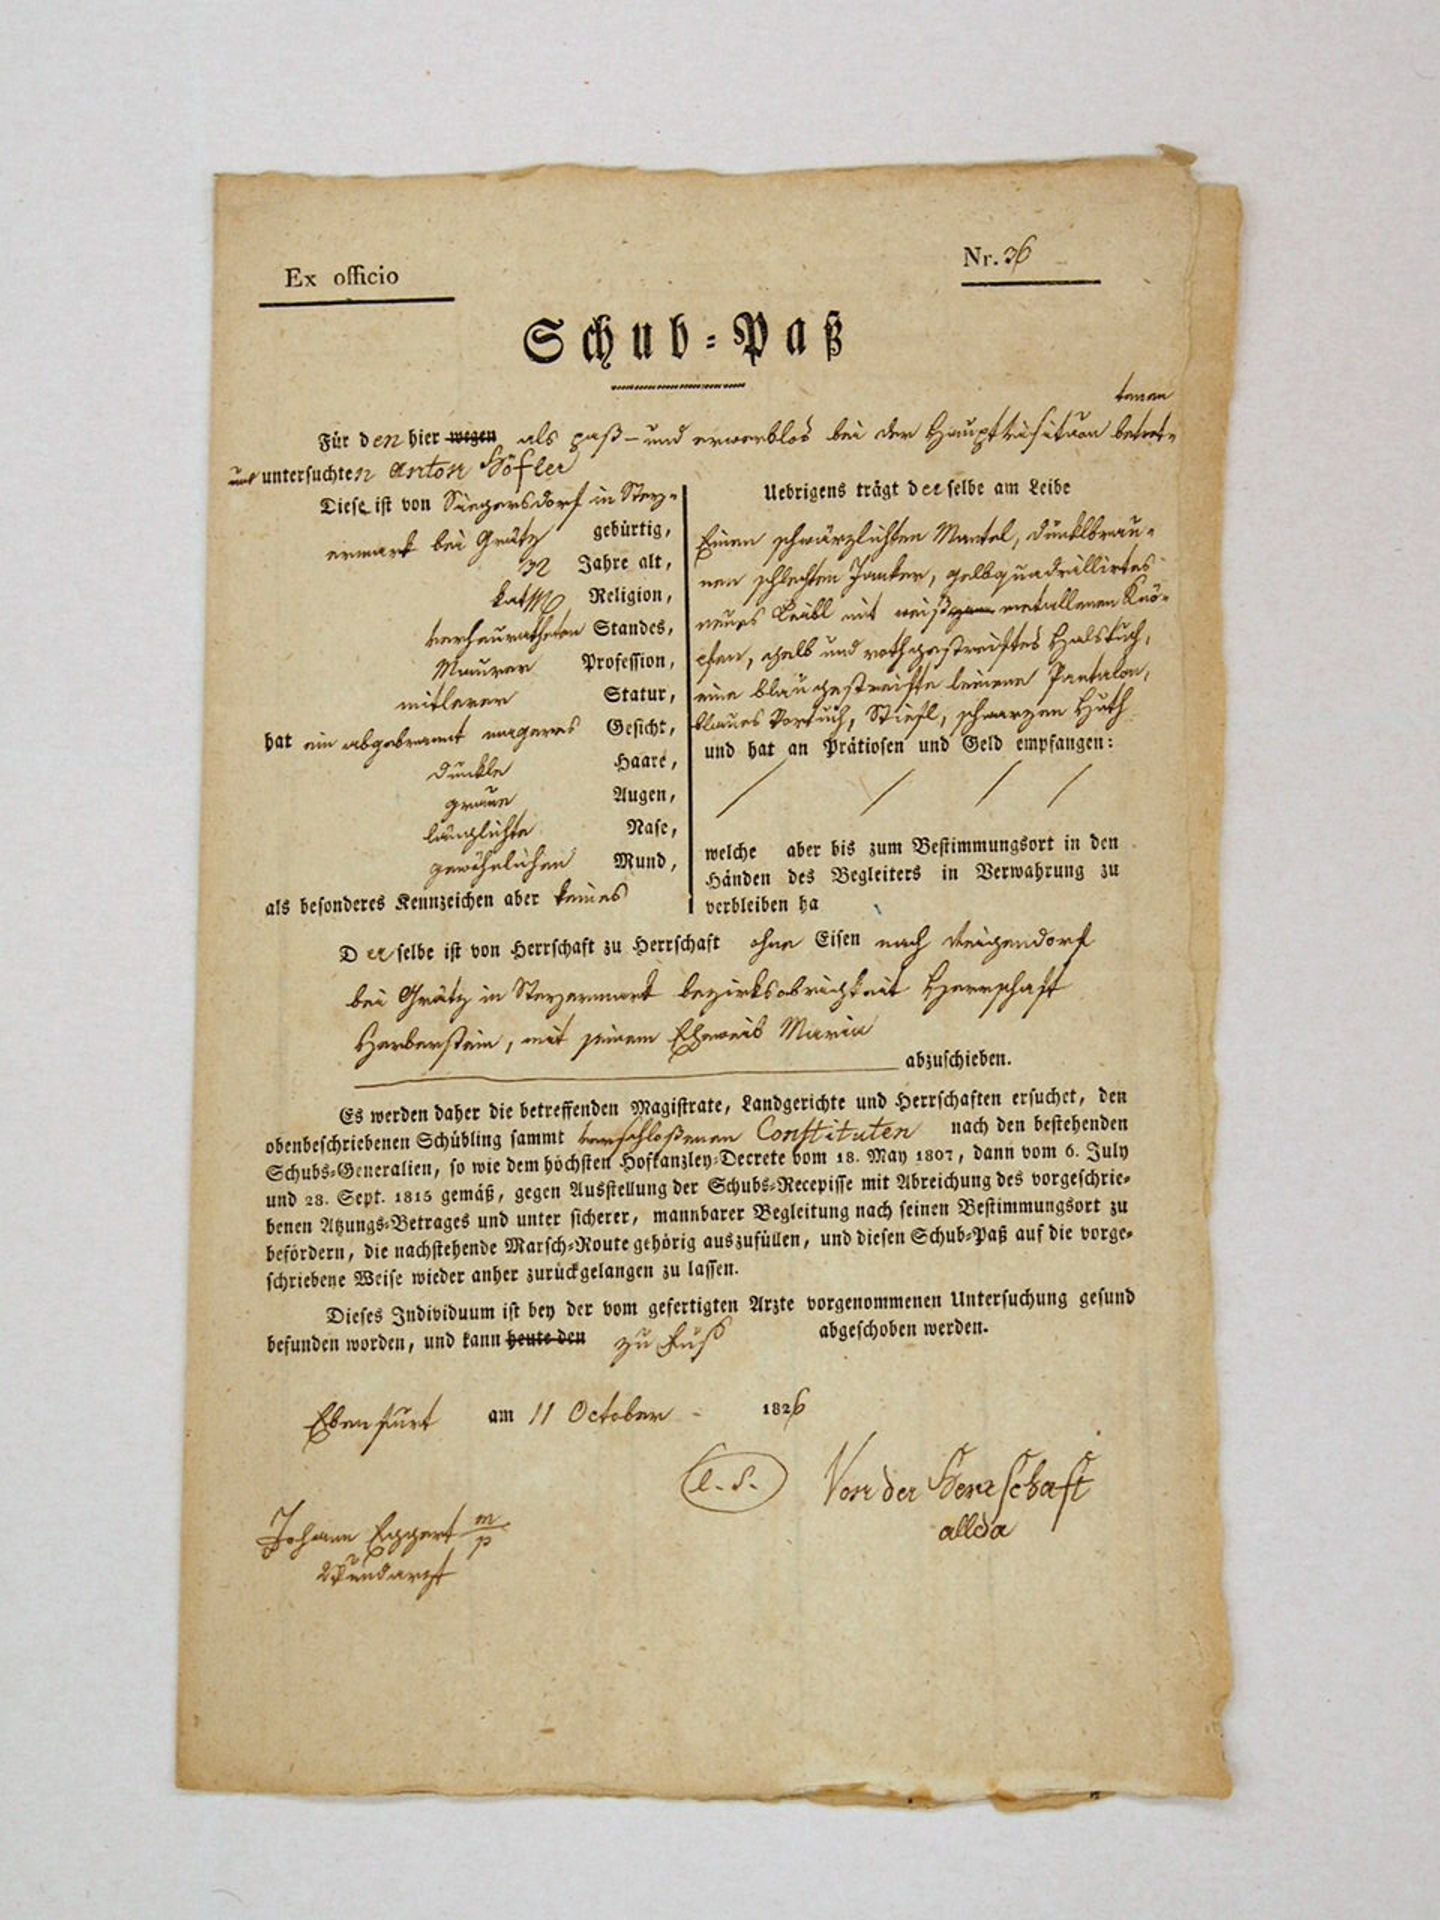 Ex officio
Nr. 36
Schub-Paß
tenen
Für den hier wegen als paß- und erwerblos bei der Hauptvisitazion betret-
und untersuchten Anton Höfler
Diese ist von Siegersdorf in Stey-
ermark bei Grätz gebürtig,
32 Jahre alt,
kathol Religion,
verheuratheten Standes,
Maurer Profession,
mitlerer Statur,
hat ein abgebrannt mageres Gesicht,
dunkle Haare,
graue Augen,
länglichte Nase,
gewöhnlichen Mund,
als besonderes Kennzeichen aber keines
Uebrigens trägt derselbe am Leibe
Einen schwärzlichten Mantel, dunklbrau-
nen schlechten Janker, gelbquadrillirtes
neues Leibl mit weiß metallenen Knö-
pfen, gelb und rothgestreiftes Halstuch,
eine blaugestreifte leinene Pantalon,
blaues Vortuch, Stiefl, schwarzen Huth
und hat an Prätiosen und Geld empfangen:
/ / / /
welche aber bis zum Bestimmungsort in den
Händen des Begleiters in Verwahrung zu
verbleiben ha
Derselbe ist von Herrschaft zu Herrschaft ohne Eisen nach
bei Grätz in Steyermark bezirksobrigkeit Herrschaft
Herberstein, mit seinem Eheweib Maria
abzuschieben.
Es werden daher die betreffenden Magistrate, Landgerichte und Herrschaften ersuchet, den
obenbeschriebenen Schübling sammt verschloßenen Constituten nach den bestehenden
Schubs-Generalien, so wie dem höchsten Hofkanzley-Decrete vom 18. May 1807, dann vom 6. July
und 28. Sept. 1815 gemäß, gegen Ausstellung der Schubs-Recepisse mit Abreichung des vorgeschrie-
benen Atzungs-Betrages und unter sicherer, mannbarer Begleitung nach seinen Bestimmungsort zu
befördern, die nachstehende Marsch-Route gehörig auszufüllen, und diesen Schub-Paß auf die vorge-
schriebene Weise wieder anher zurückgelangen zu lassen.
Dieses Individuum ist bey der vom gefertigten Arzte vorgenommenen Untersuchung gesund
befunden worden, und kann heute den zu Fuß abgeschoben werden.
Ebenfurt am 11 October 1826
L. S.
Von der Herrschaft
allda
Johann Eggert m/p
Wundarzt